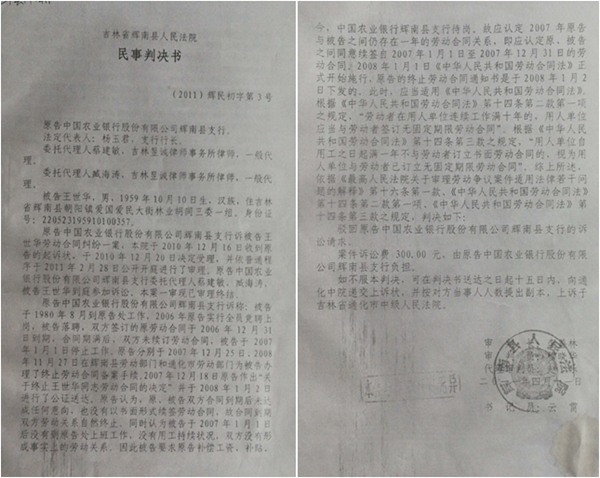 吉林省辉南县人民法院
民事判决书
(2011)辉民初字第3号
原告中国农业银行股份有限公司辉南县支行。
法定代表人:杨玉君,支行行长。
委托代理人蔡建敏,吉林呈诚律师事务所律师,一级代
理。
委托代理人臧海涛,吉林呈诚律师事务所律师,一级代
理。
被告王世华,男,1959年10月10日生,汉族,住吉林
省辉南县朝阳镇爱国爱民大街林业祠同三委一组,身份证
号:220523195910100357。
原告中国农业银行股份有限公司辉南县支行诉被告王
世华劳动合同纠纷一案,本院于2010年12月16日收到原
告的起诉状,于2010年12月20日决定受理,并依普通程
序于2011年2月28日公开开庭进行了审理。原告中国农业
银行股份有限公司辉南县支行委托代理人蔡建敏、臧海涛,
被告王世华到庭参加诉讼。本案一审现已审理终结。
原告中国农业银行股份有限公司辉南县支行诉称:被告
于1980年8月到原告处工作,2006年原告实行全员竞聘上
岗,被告落聘,双方签订的原劳动合同于2006年12月31
日到期,合同期满后,双方未续订劳动合同,被告于2007
年1月1日停止工作。原告分别于2007年12月25日、2008
年11月27日在辉南县劳动部门和通化市劳动部门为被告办
理了终止劳动合同备案手续,2007年12月18日原告作出“关
于终止王世华同志劳动合同的决定”并于2008年1月2日
进行了公证送达。原告认为,原、被告双方合同到期后未达
成任何意向,也没有以书面形式续签劳动合同,故合同到期
双方劳动关系自然终止。同时认为被告于2007年1月1日
后没有到原告处上班工作,没有用工持续状况,双方没有形
成事实上的劳动关系,因此被告要求原告补偿工资、补贴、
令,中国农业银行辉南县支行待岗,故应认定2007年原告
与被告之间仍存在一年的劳动合同关系,即应认定原、被告
之间同意续签自2007年1月1日至2007年12月31日的劳
动合同。2008年1月1日《中华人民共和国劳动合同法》正
式开始施行,原告的终止劳动合同通知书是于2008年1月2
日下发的。此时,应当适用《中华人民共和国劳动合同法》。
根据《中华人民共和国劳动合同法》第十四条第二款第一项
之规定,“劳动者在用人单位连续工作满十年的,用人单位
应当与劳动者签订无固定期限劳动合同”。根据《中华人民
共和国劳动合同法》第十四条第三款之规定,“用人单位自
用工之日起满一年不与劳动者订立书面劳动合同的,视为用
人单位与劳动者已订立无固定期限劳动合同”。综上所述,
依据《最高人民法院关于审理劳动争议案件适用法律若干问
题的解释》第十六条第一款、《中华人民共和国劳动合同法》
第十四条第二款第一项、《中华人民共和国劳动合同法》第
十四条第三款之规定,判决如下:
驳回原告中国农业银行股份有限公司辉南县支行的诉
讼请求。
案件诉讼费300.00元,由原告中国农业银行股份有限
公司辉南县支行负担。
如不服本判决,可在判决书送达之日起十五日内,向通
化中院递交上诉状,并按对方当事人人数提出副本,上诉于
吉林省通化市中级人民法院。
审
审
代
二
书 记 员